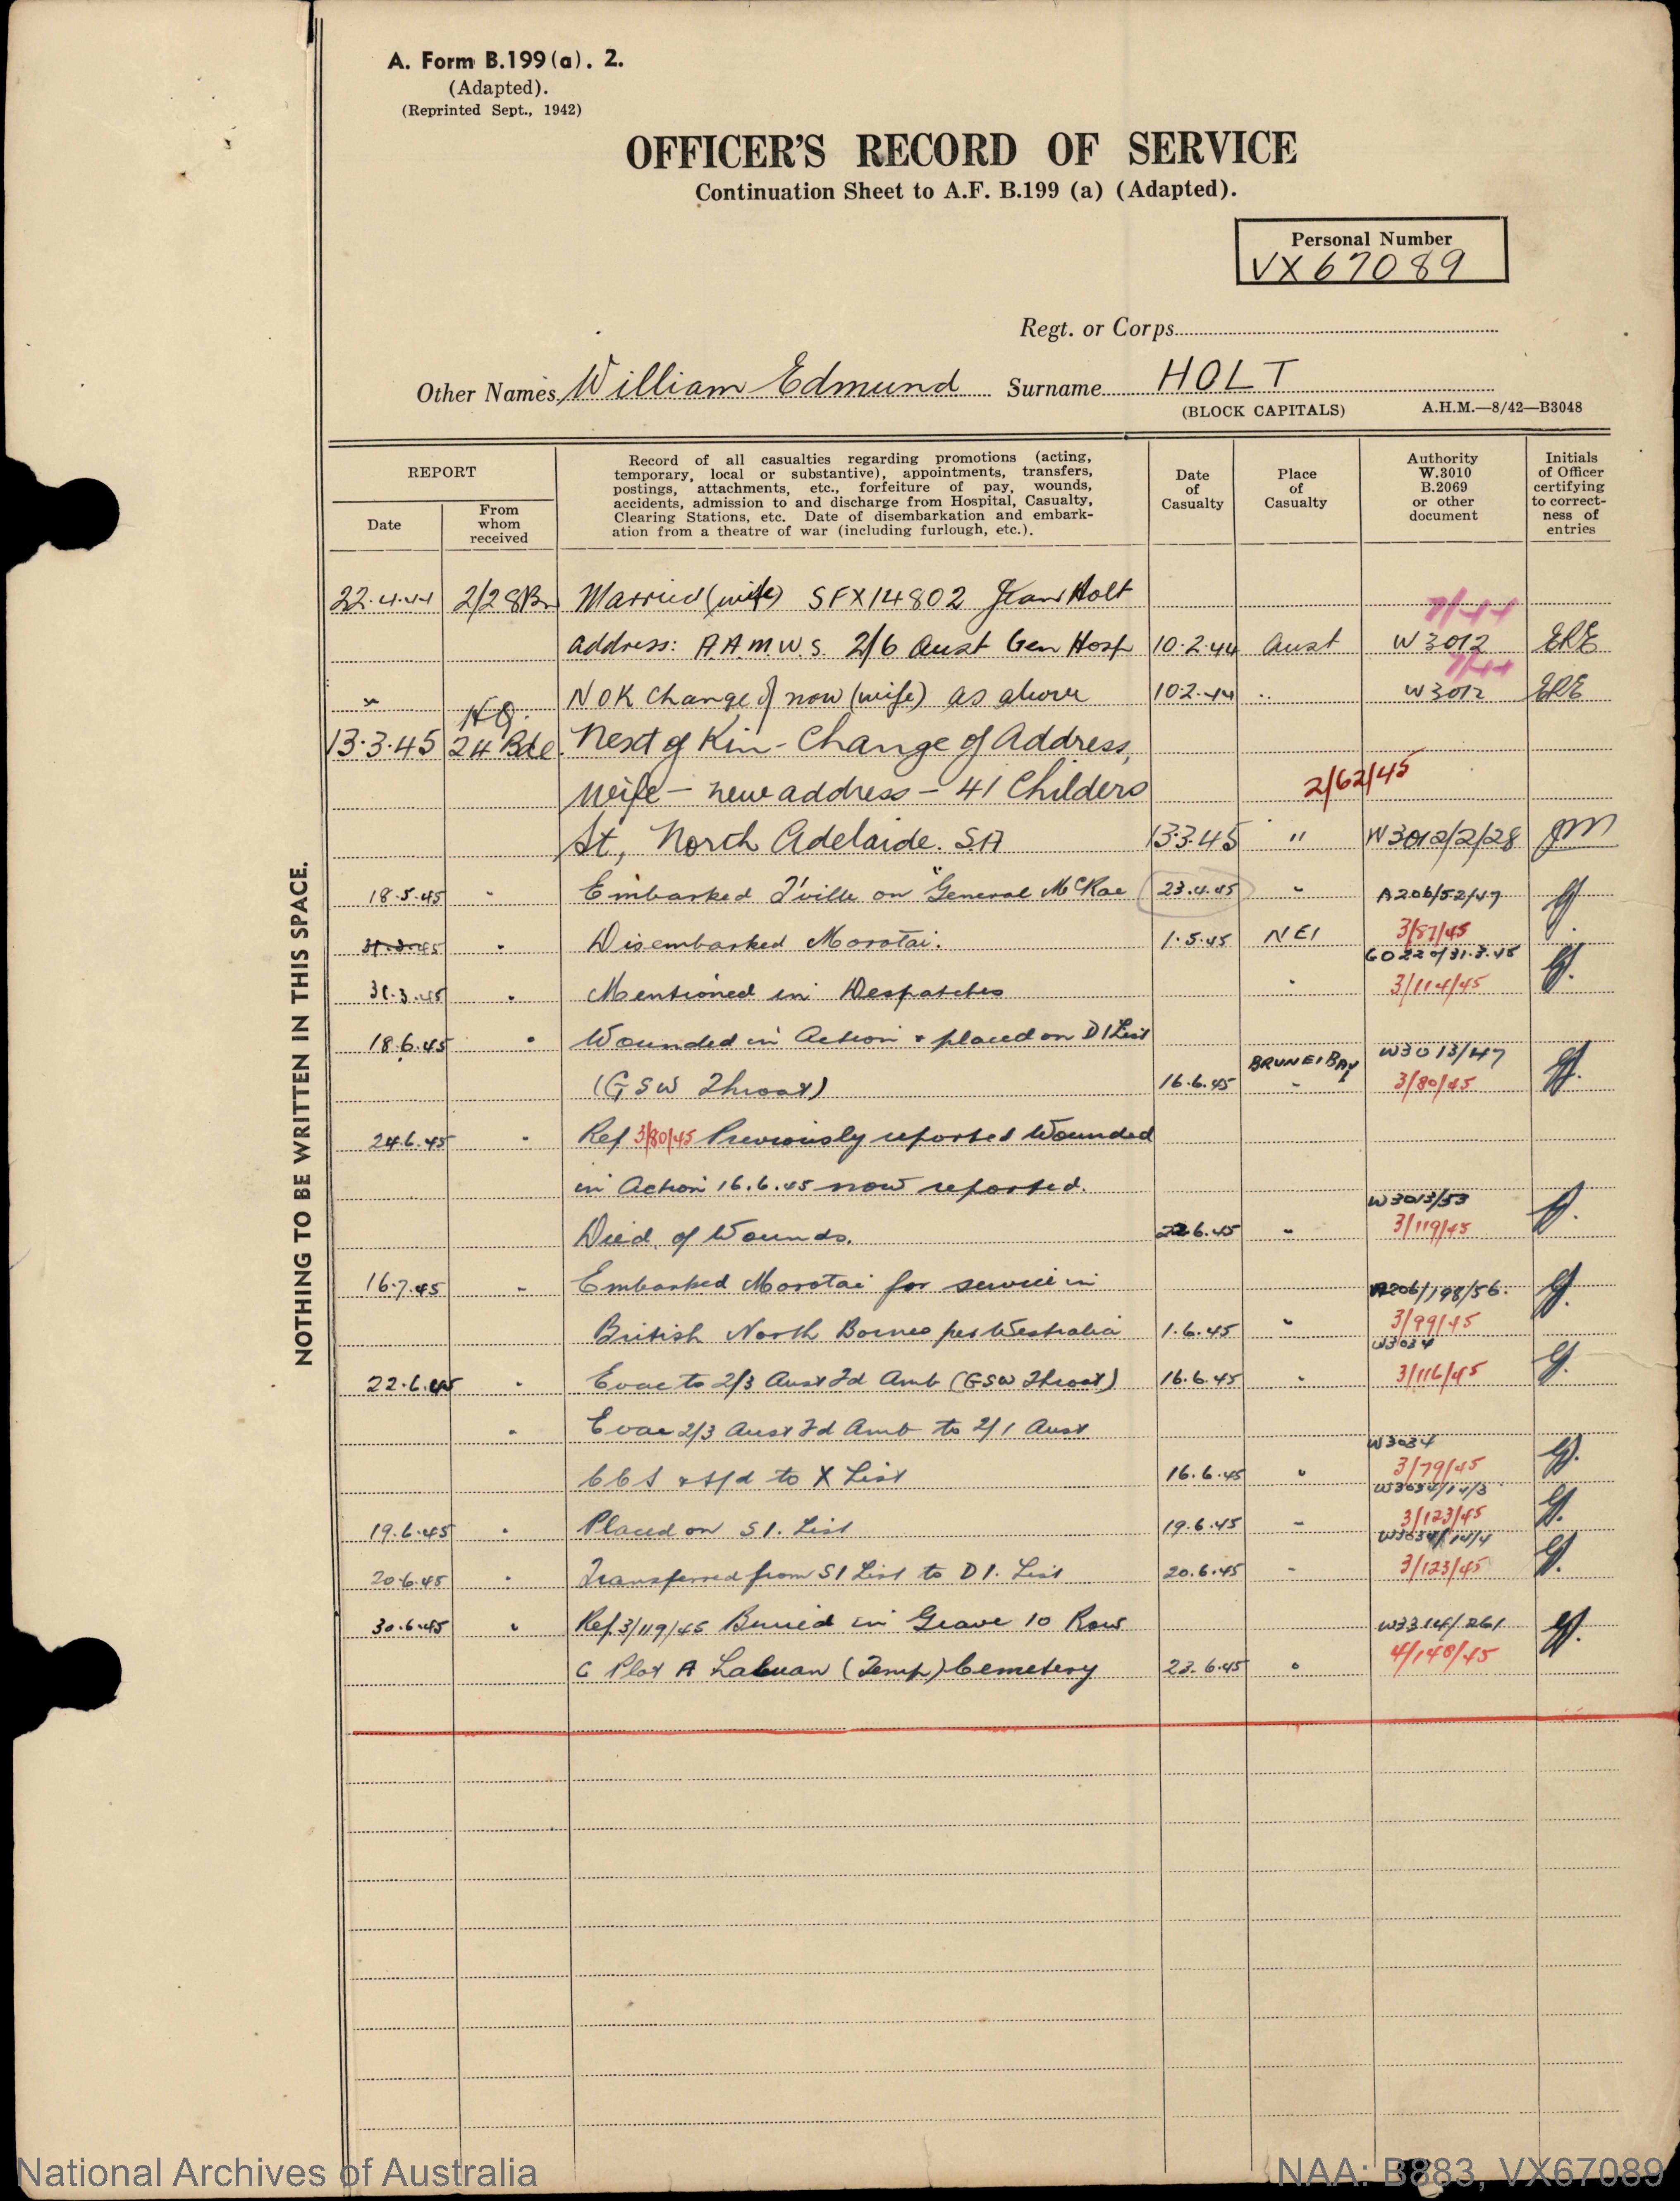 A. Form B.199(a). 2.
(Adapted).
(Reprinted Sept., 1942)
OFFICER'S RECORD OF SERVICE
Continuation Sheet to A.F. B.199 (a) (Adapted).
Personal Number
VX67089
Regt. or Corps
Other Names William Edmund Surname HOLT
(BLOCK CAPITALS) A.H.M.—8/42—B3048
NOTHING TO BE WRITTEN IN THIS SPACE.
REPORT
Date
From whom received
Record of all casualties regarding promotions (acting,
temporary, local or substantive), appointments, transfers,
postings, attachments, etc., forfeiture of pay, wounds,
accidents, admission to and discharge from Hospital, Casualty,
Clearing Stations, etc. Date of disembarkation and embark-
ation from a theatre of war (including furlough, etc.).
Date of Casualty
Place of Casualty
Authority W.3010 B.2069 or other document
Initials of Officer certifying to correct-ness of entries
22.4.44 2/28 Bn Married (wife) SFX14802 Jean Holt
7/44
address: A.A.M.W.S. 2/6 Aust Gen Hosp 10.2.44 Aust W3012 ERE
7/44
" NOK change of now (wife) as above 10.2.44 " W3012 ERE
HQ.
13.3.45 24 Bde Next of Kin - Change of Address,
wife - new address - 41 Childers 2/62/45
St, North Adelaide. SA 13.3.45 " W3012/2/28
18.5.45 " Embarked T'ville on "General McRae 23.4.45 " A206/52/47
31.3.45 " Disembarked Morotai. 1.5.45 NEI 3/87/45
GO 220/31.3.45
31.3.45 " Mentioned in Despatches " 3/114/45
18.6.45 " Wounded in Action & placed on DI List
BRUNEI BAY W3013/47
(GSW Throat) 16.6.45 " 3/80/45
24.6.45 " Ref 3/80/45 Previously reported Wounded
in Action 16.6.45 now reported.
W3013/53
Died of Wounds. 22.6.45 " 3/119/45
16.7.45 " Embarked Morotai for service in A206/198/56.
British North Borneo per Westralia 1.6.45 " 3/99/45
W3034
22.6.45 " Evac to 2/3 Aust Fd Amb (GSW Throat) 16.6.45 " 3/116/45
" Evac 2/3 Aust Fd Amb to 2/1 Aust
W3034
CCS & s/d to X List 16.6.45 " 3/79/45
W3034/14/3
19.6.45 " Placed on S.I. List 19.6.45 " 3/123/45
W3034/14/4
20.6.45 " Transferred from SI List to D.I. List 20.6.45 " 3/123/45
30.6.45 " Ref 3/119/45 Buried in Grave 10 Row W3314/261
C Plot A Labuan (Temp) Cemetery 23.6.45 " 4/148/45
National Archives of Australia
NAA: B883, VX67089